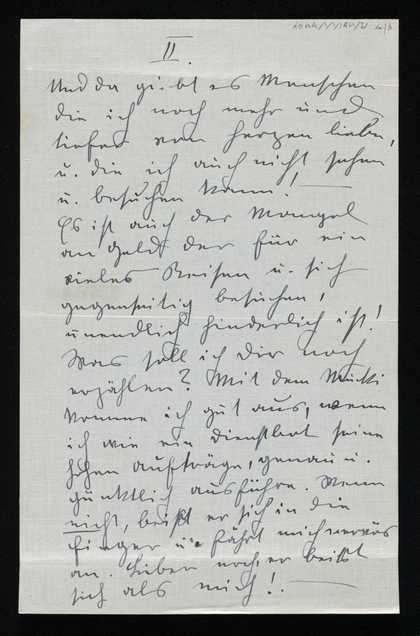 II.
Und da giebt es Menschen
die ich noch mehr und
tiefer von Herzen liebe,
u. die ich auch nicht sehen
u. besuchen kann! —
Es ist auch der Mangel
an Geld der für ein
vieles Reisen u. sich
gegenseitig besuchen,
unendlich hinderlich ist!
Was soll ich Dir noch
erzählen? Mit dem Mucki
komme ich gut aus, wenn
ich wie ein Dienstbot seine
hohen Aufträge, genau u.
pünktlich ausführe. Wenn
nicht, beißt er sich in die
Finger u. fährt mich nervös
an. Lieber noch er beißt
sich als mich!. —